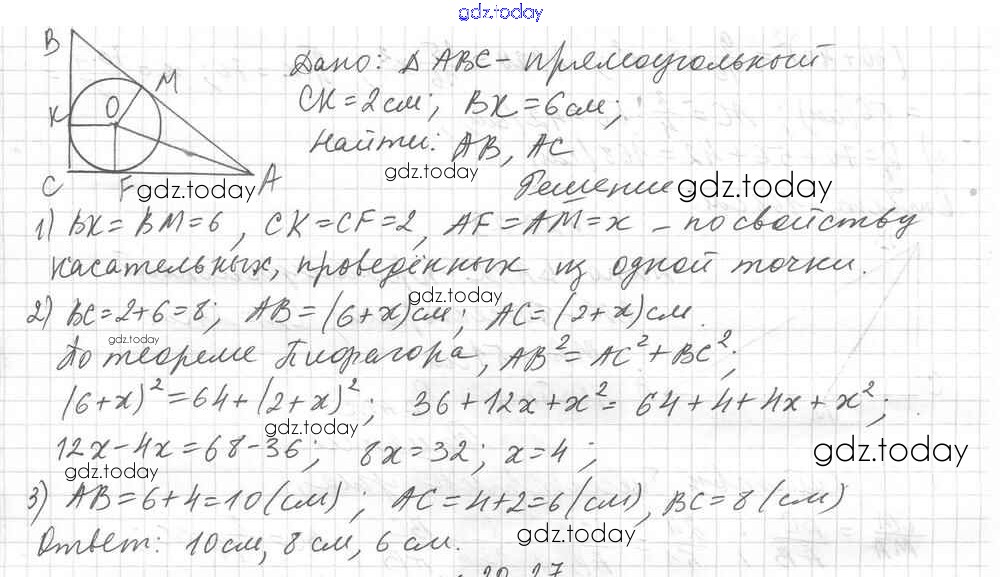 gdz.today
B
M
K
O
C
F
A
gdz.today
Дано: Δ ABC - прямоугольный
CK = 2 см; BK = 6 см;
Найти: AB, AC
gdz.today
Решение.
gdz.today
1) BK = BM = 6, CK = CF = 2, AF = AM = x – по свойству
касательных, проведённых из одной точки.
gdz.today
2) BC = 2 + 6 = 8; AB = (6 + x) см; AC = (2 + x) см.
gdz.today
По теореме Пифагора, AB² = AC² + BC²;
(6 + x)² = 64 + (2 + x)²; 36 + 12x + x² = 64 + 4 + 4x + x²;
gdz.today
12x - 4x = 68 - 36; 8x = 32; x = 4;
gdz.today
gdz.today
3) AB = 6 + 4 = 10 (см); AC = 4 + 2 = 6 (см), BC = 8 (см)
Ответ: 10 см, 8 см, 6 см.
gdz.today